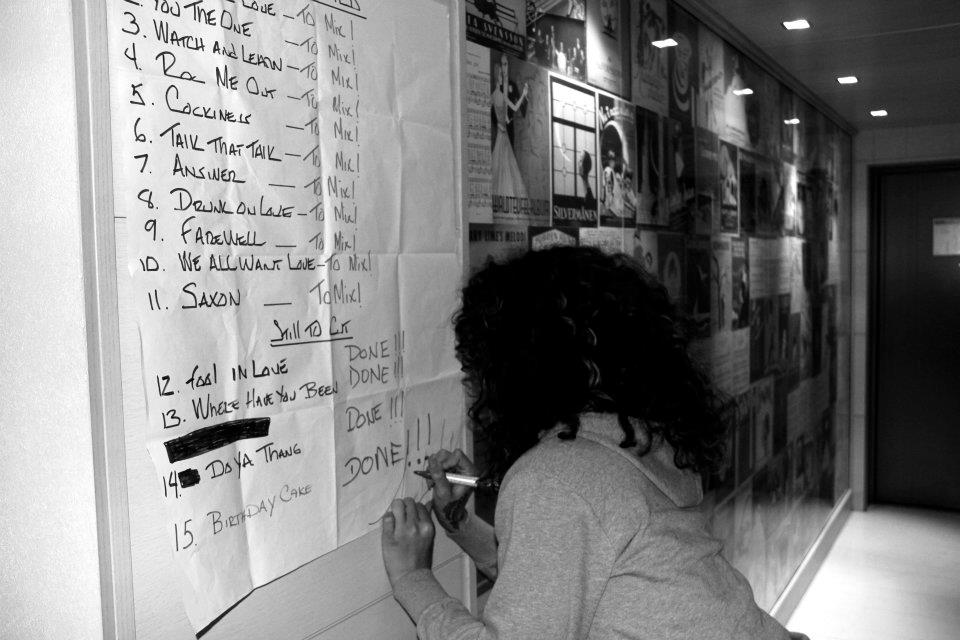 LOVE — TO MIX!
YOU THE ONE — TO MIX!
3. WATCH AND LEARN — TO MIX!
4. ROC ME OUT — TO MIX!
5. COCKINESS — TO MIX!
6. TALK THAT TALK — TO MIX!
7. ANSWER — TO MIX!
8. DRUNK ON LOVE — TO MIX!
9. FAREWELL — TO MIX!
10. WE ALL WANT LOVE — TO MIX!
11. SAXON — TO MIX!
STILL TO CUT
12. FOOL IN LOVE DONE!!!
13. WHERE HAVE YOU BEEN DONE!!!
14. DO YA THANG DONE!!!
15. BIRTHDAY CAKE DONE!!!
SVENSSON
WALDTEUFELALBUM
SILVERMÅNEN
HARRY LIME'S MELODI